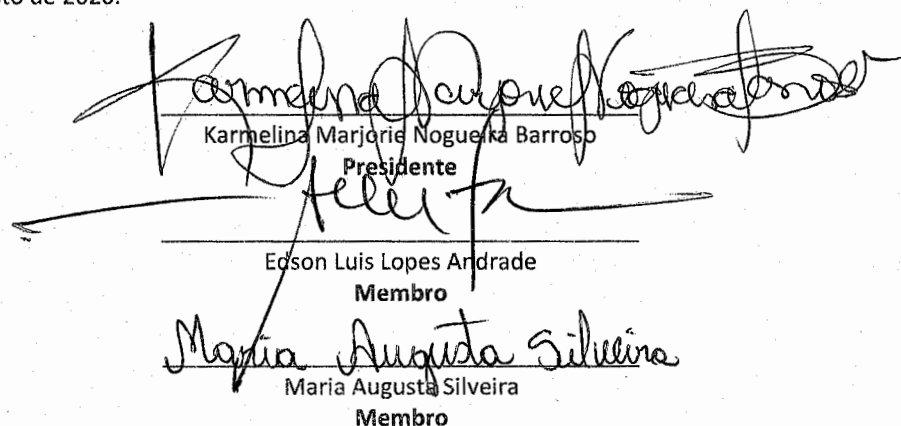 de 2020.
Karmelina Marjorie Nogueira Barroso
Karmelina Marjorie Nogueira Barroso
Presidente
Edson Luis Lopes Andrade
Membro
Maria Augusta Silveira
Maria Augusta Silveira
Membro